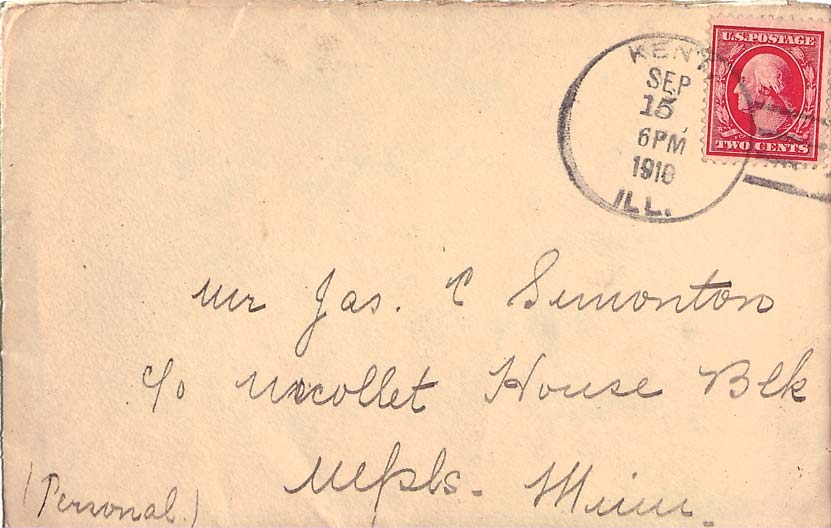 U.S. POSTAGE
TWO CENTS
KENT
SEP
15
6 PM
1910
ILL.
Mr Jas. C Simonton
c/o Nicollet House Blk
Mpls. Minn.
(Personal.)